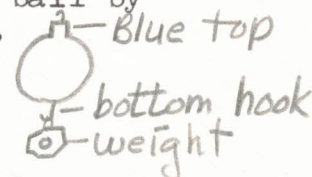 ball by
Blue top
bottom hook
weight